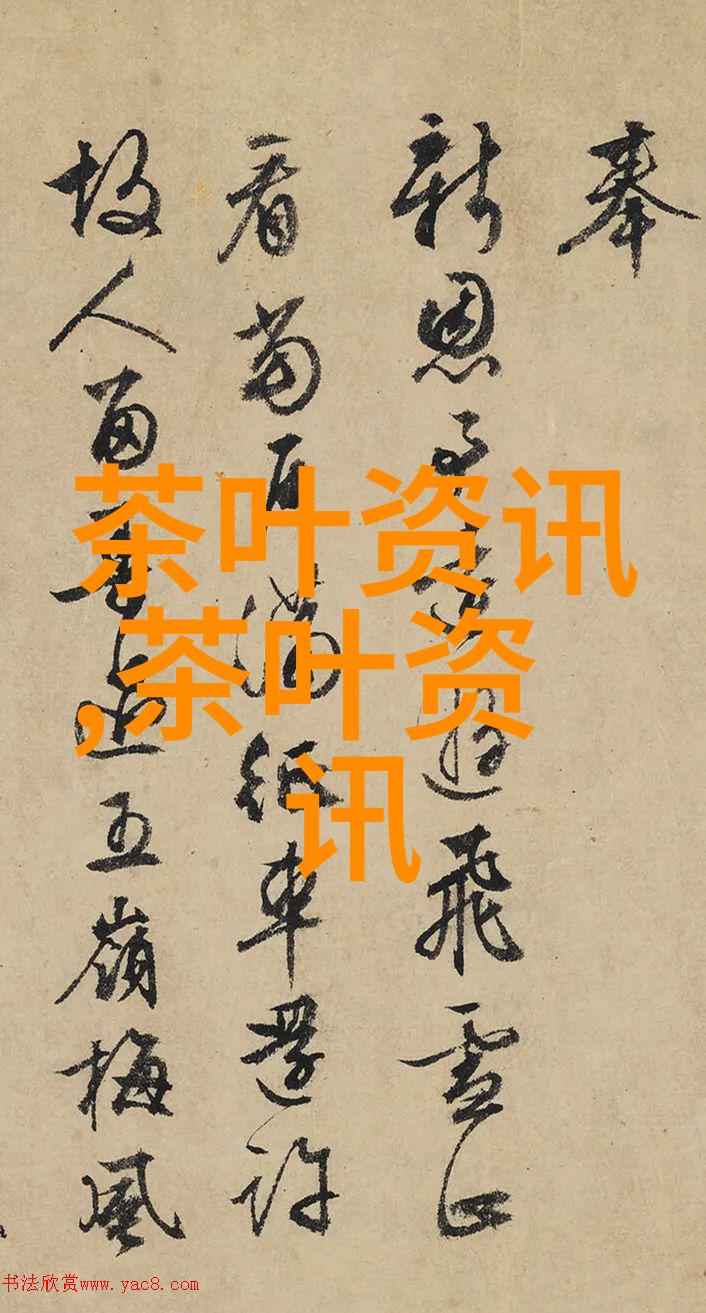 奉
新恩遊飛雪正
看滿紙車還許
故人五嶺梅風
茶叶资讯
,茶叶资
讯
书法欣赏www.yac8.com